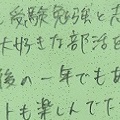 受験勉強と志
大好きな部活を
後の一年でもあ
トも楽しんでた